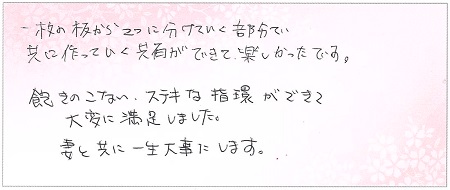 一枚の板から2つに分けていく部分で
共に作っていく共有ができて楽しかったです。
飽きのこない、ステキな指環ができて
大変に満足しました。
妻と共に一生大事にします。